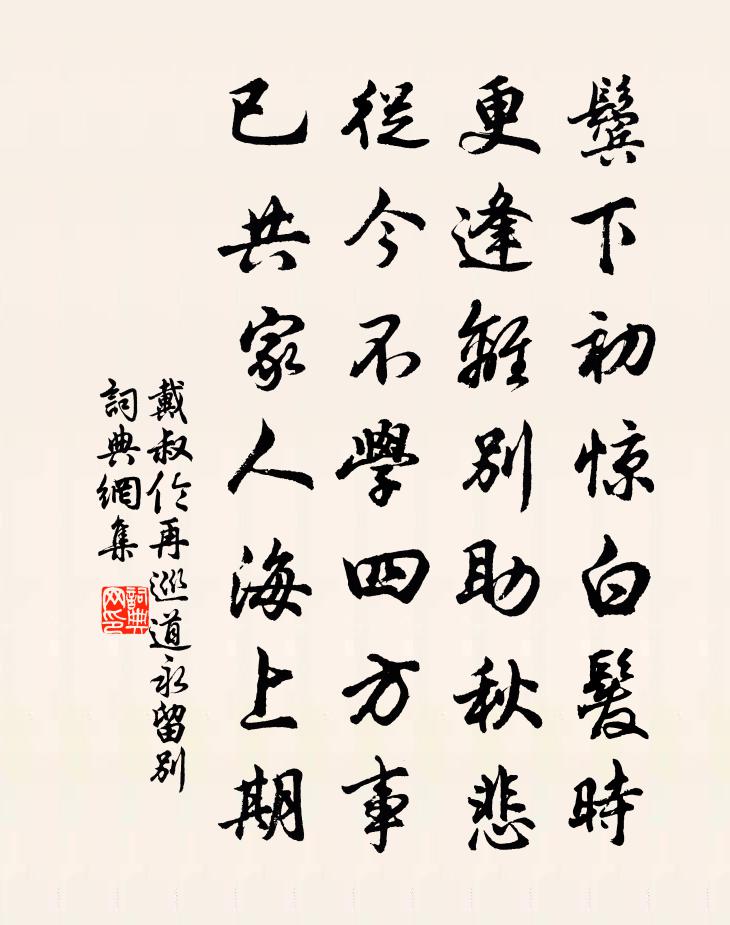 鬓下初惊白髮時
更逢離別助秋悲
從今不學四方事
已共家人海上期
戴叔伦再巡道永留別
詞典網集
詞典网印